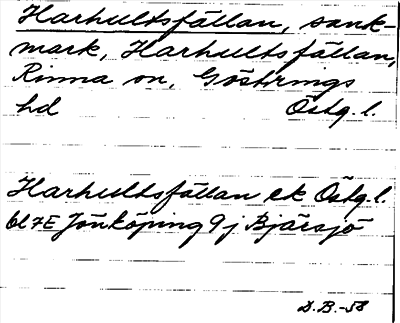 Harhultsfällan, sank-
mark, Harhultsfällan,
Rinna sn, Göstrings
hd Östg. l.
Harhultsfällan ek Östg. l.
bl 7E Jönköping 9 j Bjärsjö
D.B.-58